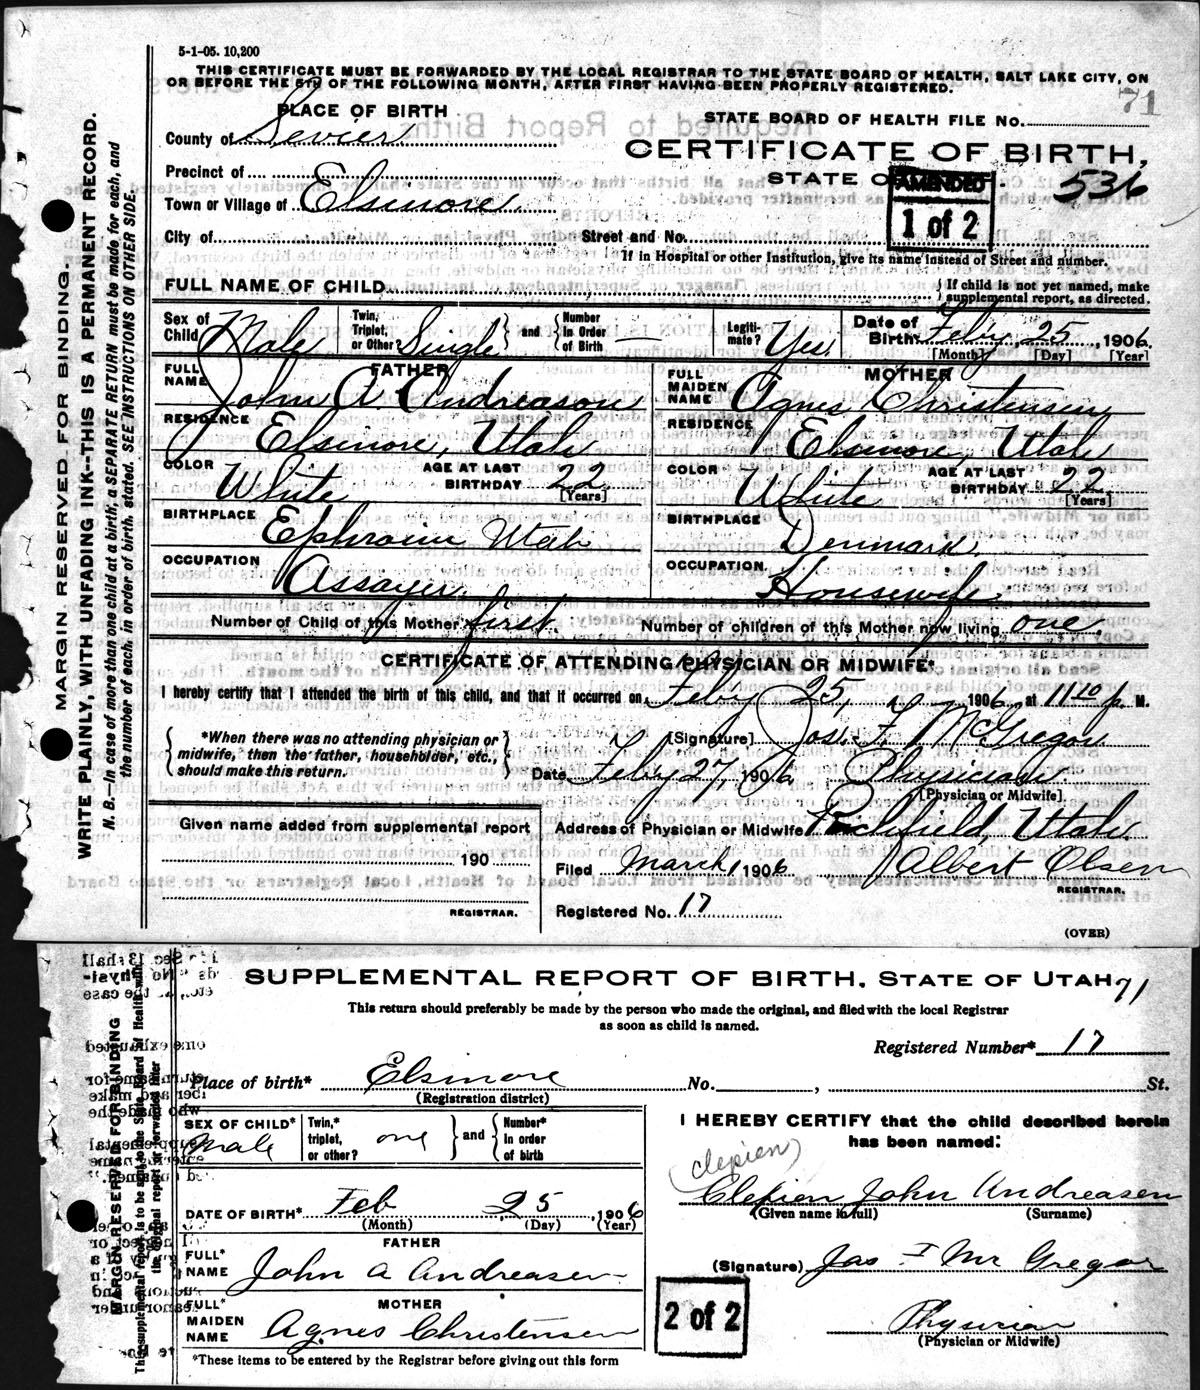 5-1-05. 10,200
THIS CERTIFICATE MUST BE FORWARDED BY THE LOCAL REGISTRAR TO THE STATE BOARD OF HEALTH, SALT LAKE CITY, ON
OR BEFORE THE 5TH OF THE FOLLOWING MONTH, AFTER FIRST HAVING BEEN PROPERLY REGISTERED.
71
PLACE OF BIRTH
STATE BOARD OF HEALTH FILE NO.
County of Sevier
CERTIFICATE OF BIRTH,
Precinct of
STATE O
AMENDED
536
Town or Village of Elsinore
1 of 2
City of
Street and No.
If in Hospital or other Institution, give its name instead of Street and number.
FULL NAME OF CHILD
If child is not yet named, make
supplemental report, as directed.
Sex of Child Male
Twin, Triplet, or Other? Single
and Number In Order of Birth —
Legiti- mate? Yes
Date of Birth Feby 25, 1906
[Month] [Day] [Year]
FATHER
FULL NAME John A Andreason
MOTHER
FULL MAIDEN NAME Agnes Christensen
RESIDENCE Elsinore, Utah
RESIDENCE Elsinore Utah
COLOR White
AGE AT LAST BIRTHDAY 22 [Years]
COLOR White
AGE AT LAST BIRTHDAY 22 [Years]
BIRTHPLACE Ephraim Utah
BIRTHPLACE Denmark
OCCUPATION Assayer
OCCUPATION. Housewife
Number of Child of this Mother first
Number of children of this Mother now living one
CERTIFICATE OF ATTENDING PHYSICIAN OR MIDWIFE*
I hereby certify that I attended the birth of this child, and that it occurred on Feby 25, 1906 at 11 10 p. M.
*When there was no attending physician or
midwife, then the father, householder, etc.,
should make this return.
[Signature] Jas. F. McGregor
Date Feby 27, 1906 Physician
[Physician or Midwife]
Given name added from supplemental report
190
REGISTRAR.
Address of Physician or Midwife Richfield, Utah
Filed March 1 1906 Albert Olsen
REGISTRAR.
Registered No. 17
(OVER)
MARGIN RESERVED FOR BINDING.
WRITE PLAINLY, WITH UNFADING INK--THIS IS A PERMANENT RECORD.
N. B.—In case of more than one child at a birth, a SEPARATE RETURN must be made for each, and
the number of each, in order of birth, stated. SEE INSTRUCTIONS ON OTHER SIDE.
SUPPLEMENTAL REPORT OF BIRTH, STATE OF UTAH 71
This return should preferably be made by the person who made the original, and filed with the local Registrar
as soon as child is named.
Registered Number* 17
Place of birth* Elsinore No. , St.
(Registration district)
SEX OF CHILD* Male
Twin,* triplet, or other? one
and Number* in order of birth
I HEREBY CERTIFY that the child described herein
has been named:
(Clepien)
Clepien John Andreasen
(Given name in full) (Surname)
DATE OF BIRTH* Feb 25 1906
(Month) (Day) (Year)
FATHER
FULL* NAME John A Andreasen
(Signature) Jas F Mc Gregor
MOTHER
FULL* MAIDEN NAME Agnes Christensen
2 of 2
Physician
(Physician or Midwife)
*These items to be entered by the Registrar before giving out this form
MARGIN RESERVED FOR BINDING